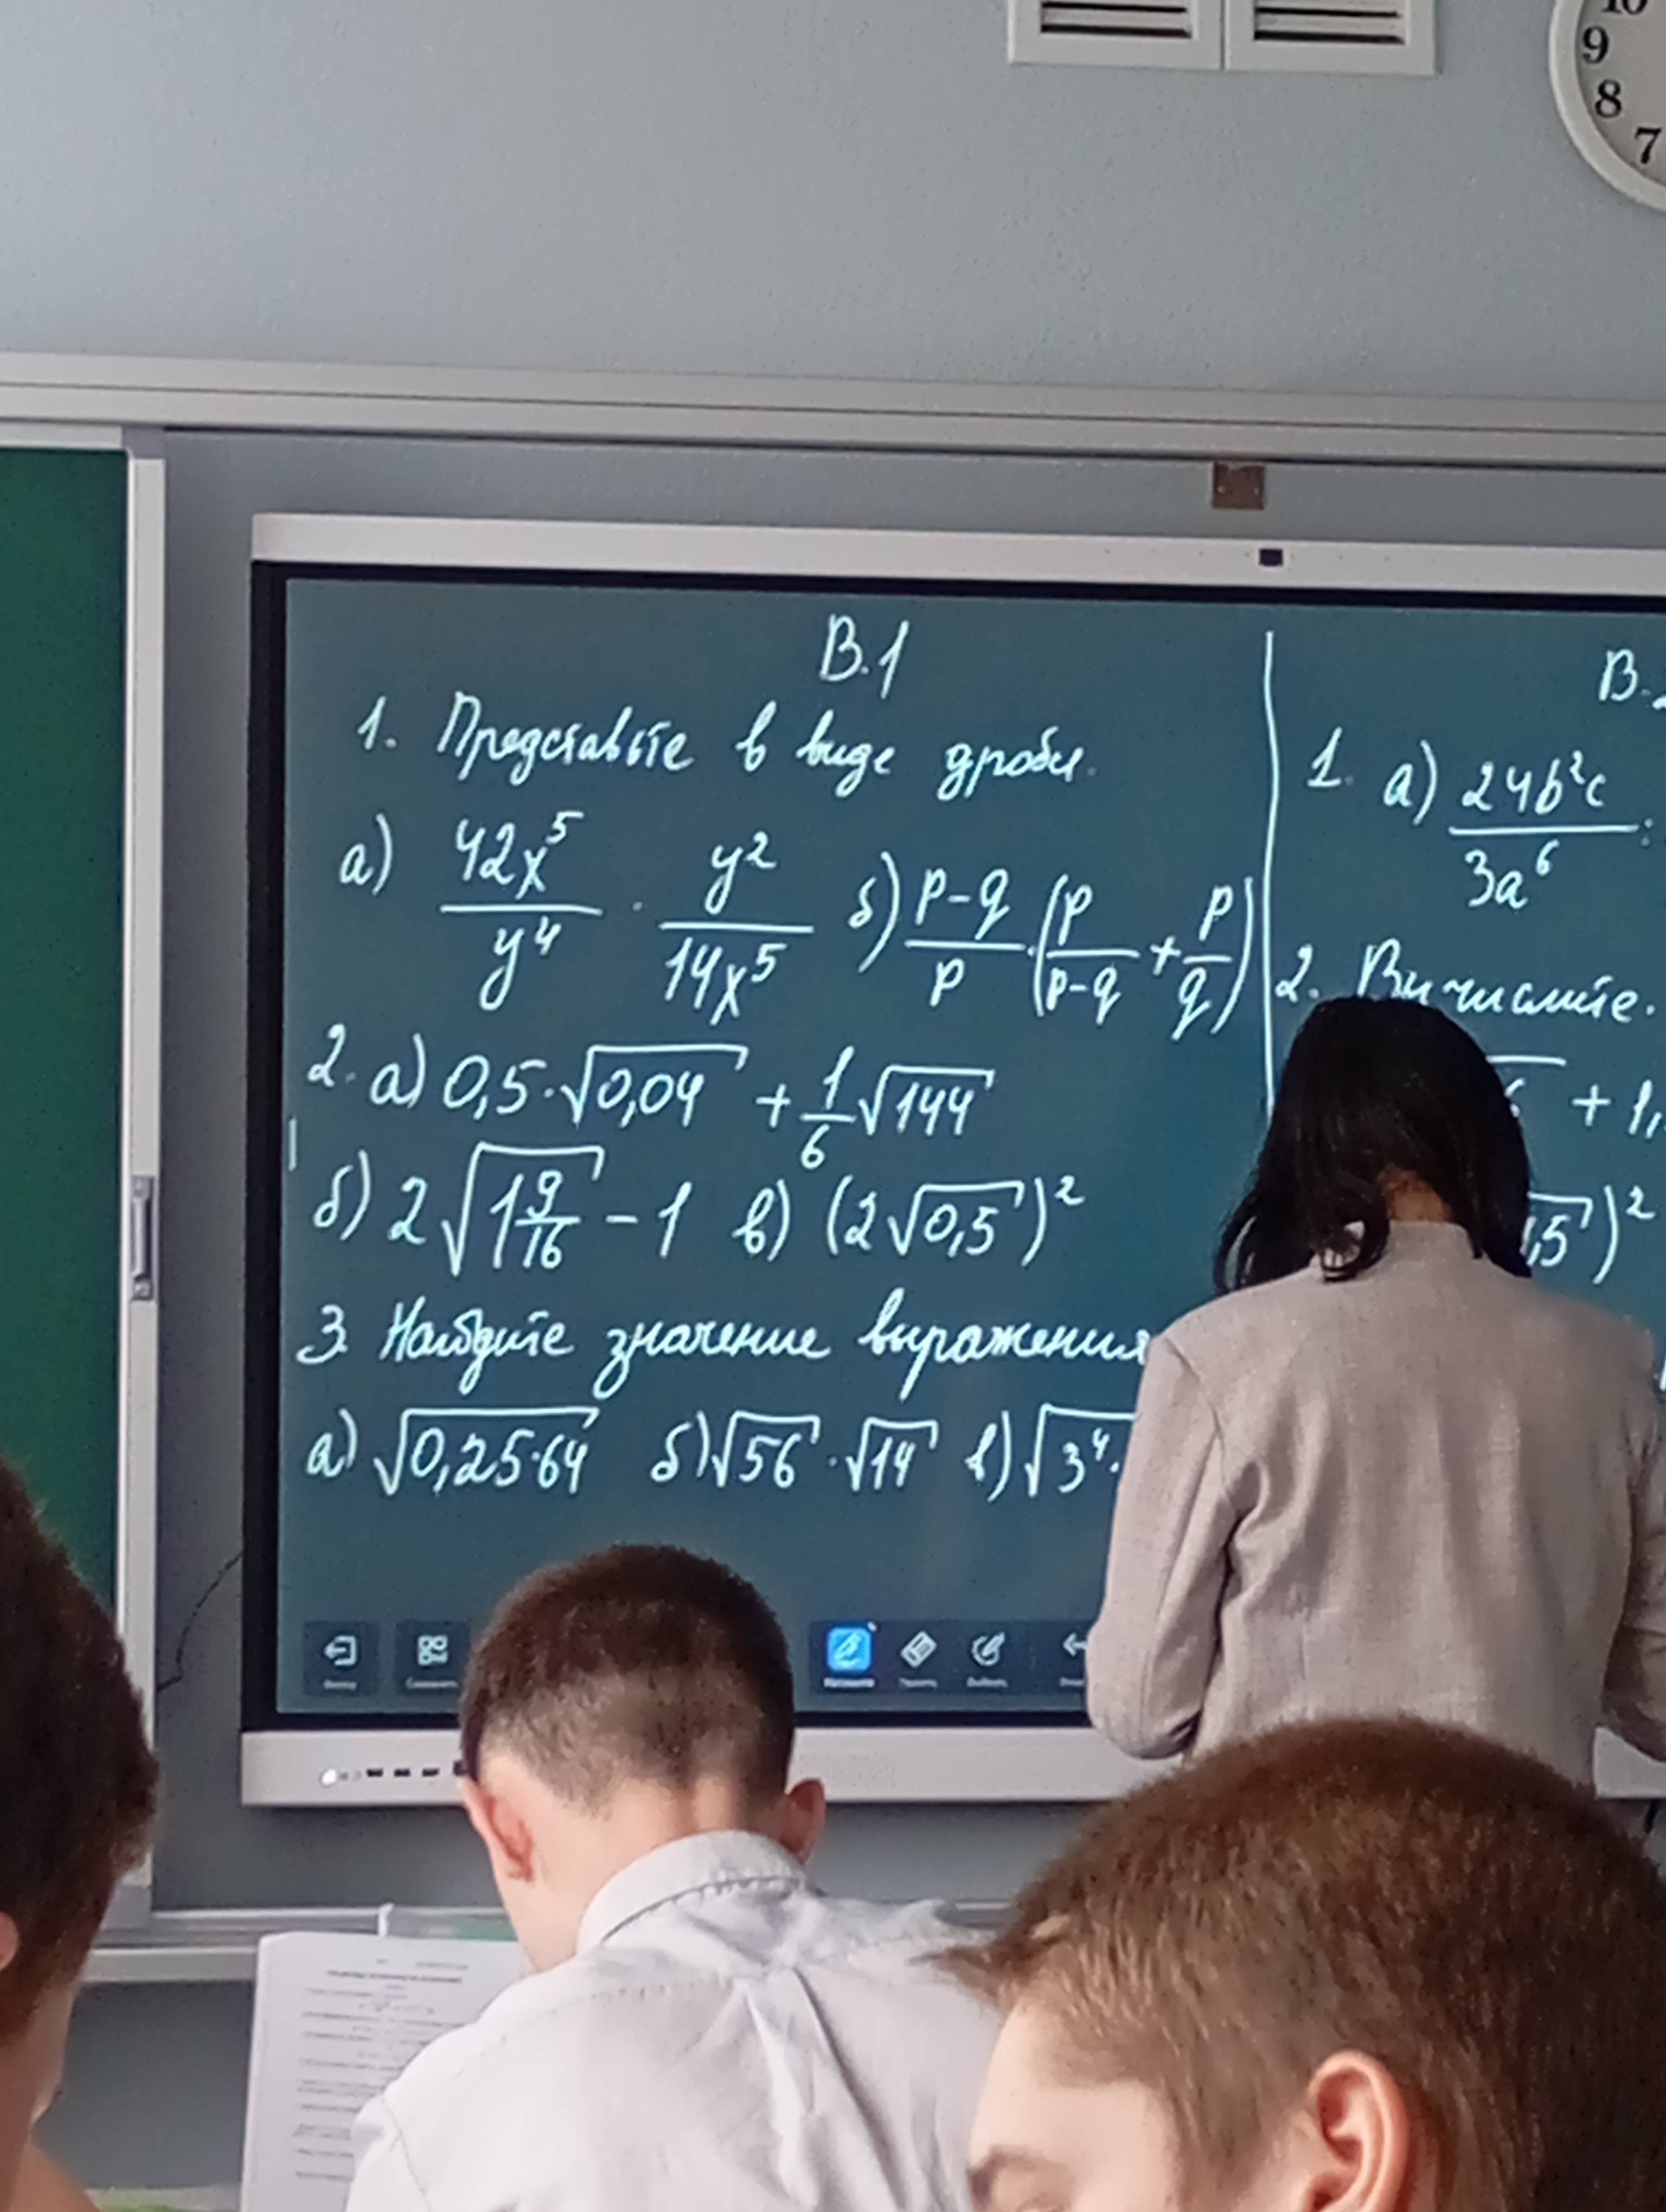 10
9
8
7
В.1
1. Представьте в виде дроби.
а) 42x⁵/y⁴ · y²/14x⁵ б) p-q/p · (p/p-q + p/q)
2. а) 0,5·√0,04 + 1/6 √144
б) 2√1 9/16 - 1 в) (2√0,5)²
3. Найдите значение выражения
а) √0,25·64 б) √56 · √14 в) √3⁴·
В.
1. а) 24b²c/3a⁶ :
2. Вычислите.
+ 1,
,5)²